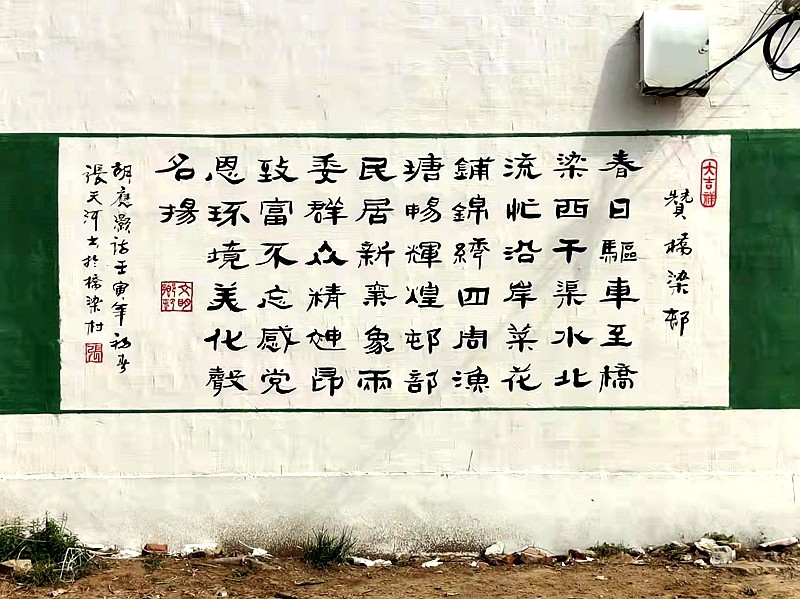 大吉祥
贊橋梁邨
春日驅車至橋
梁西干渠水北
流忙沿岸菜花
鋪錦繡四周漁
塘暢輝煌邨部
民居新氣象兩
委群众精神昂
致富不忘感党
恩环境美化聲
名揚
文明鄉邨
胡庭灝诗壬寅年初夏
張天河书於橋梁村
張